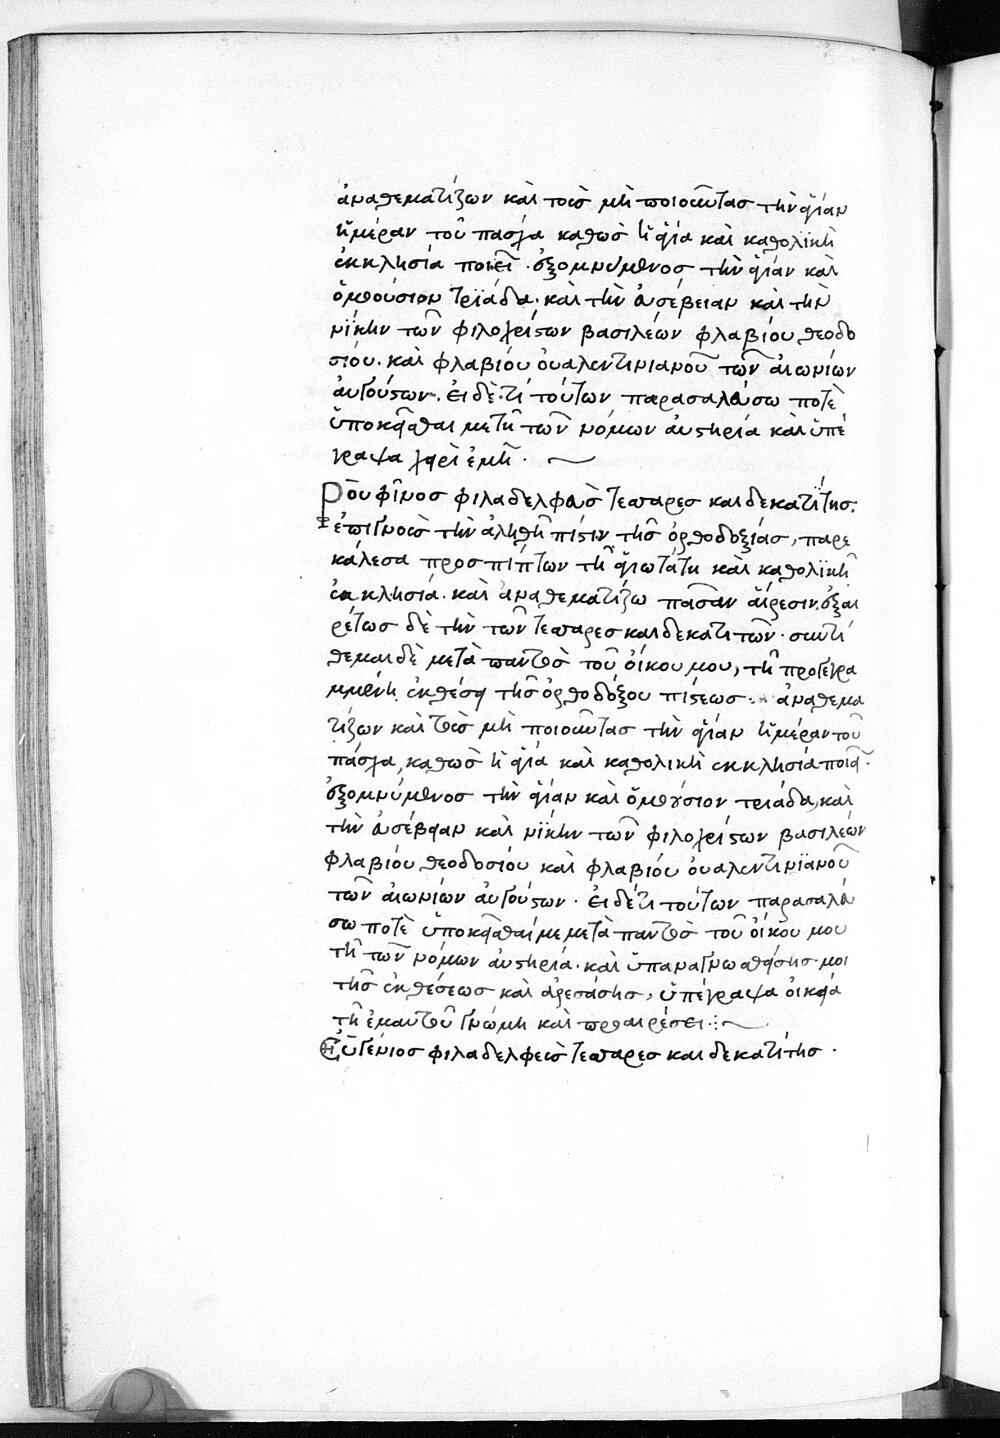 ἀναθεματίζων καὶ τοὺς μὴ ποιοῦντας τὴν ἁγίαν
ἡμέραν τοῦ πάσχα καθὼς ἡ ἁγία καὶ καθολϊκὴ
ἐκκλησία ποιεῖ · ἐξομνύμενος τὴν ἁγίαν καὶ
ὁμοούσιον τρϊάδα · καὶ τὴν εὐσέβειαν καὶ τὴν
νίκην τῶν φιλοχρίστων βασιλέων φλαβίου θεοδο
σίου · καὶ φλαβίου οὐαλεντινιανοῦ τῶν αἰωνίων
αὐγούστων · εἰ δέ τι τούτων παρασαλεύσω ποτὲ
ὑποκεῖσθαι με τῇ τῶν νόμων αὐστηρία καὶ ὑπέ
γραψα χειρὶ ἐμῇ ·
Ῥουφῖνος φιλαδελφεὺς τεσσαρεσκαιδεκατίτης ·
ἐπιγνοὺς τὴν ἀληθῆ πίστιν τῆς ὀρθοδοξίας, παρε
κάλεσα προσπίπτων τῇ ἁγιωτάτη καὶ καθολϊκῇ
ἐκκλησία · καὶ ἀναθεματίζω πᾶσαν αἵρεσιν · ἐξαι
ρέτως δὲ τὴν τῶν τεσσαρεσκαιδεκατιτῶν · συντί
θεμαι δὲ μετὰ παντὸς τοῦ οἴκου μου, τῇ προγεγρα
μμένη ἐκθέσει τῆς ὀρθοδόξου πίστεως · ἀναθεμα
τίζων καὶ τοὺς μὴ ποιοῦντας τὴν ἁγίαν ἡμέραν τοῦ
πάσχα, καθὼς ἡ ἁγία καὶ καθολικὴ ἐκκλησία ποιεῖ ·
ἐξομνύμενος τὴν ἁγίαν καὶ ὁμοούσιον τριάδα, καὶ
τὴν εὐσέβειαν καὶ νίκην τῶν φιλοχρίστων βασιλέων
φλαβίου θεοδοσίου καὶ φλαβίου οὐαλεντινϊανοῦ
τῶν αἰωνίων αὐγούστων · εἰ δέ τι τούτων παρασαλεύ
σω ποτὲ ὑποκεῖσθαί με μετὰ παντὸς τοῦ οἴκου μου
τῇ τῶν νόμων αὐστηρία · καὶ ὑπαναγνωσθείσης μοι
τῆς ἐκθέσεως καὶ ἀρεσάσης, ὑπέγραψα οἰκεία
τῇ ἐμαυτοῦ γνώμη καὶ προαιρέσει :
Εὐγένιος φιλαδελφεὺς τεσσαρεσκαιδεκατίτης ·